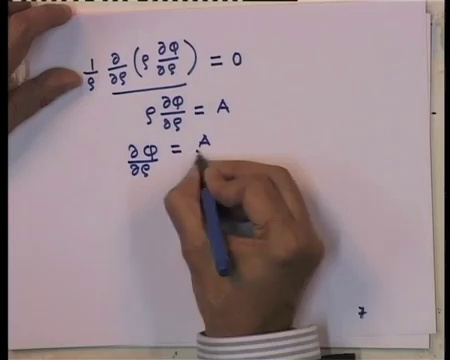 1/ρ ∂/∂ρ (ρ ∂φ/∂ρ) = 0
ρ ∂φ/∂ρ = A
∂φ/∂ρ = A
7